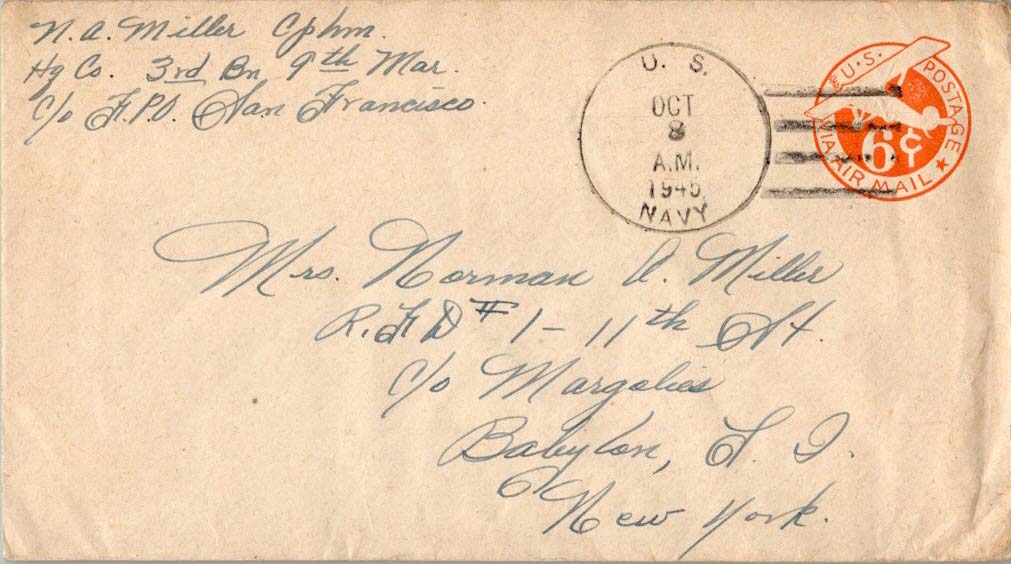 N. A. Miller Cphm.
Hq Co. 3rd Bn, 9th Mar.
c/o F.P.O. San Francisco.
U. S.
OCT
8
A.M.
1945
NAVY
U.S. POSTAGE
6¢
VIA AIR MAIL
Mrs. Norman A. Miller
R.F.D # 1 - 11th St.
c/o Margolies
Babylon, L. I.
New York.